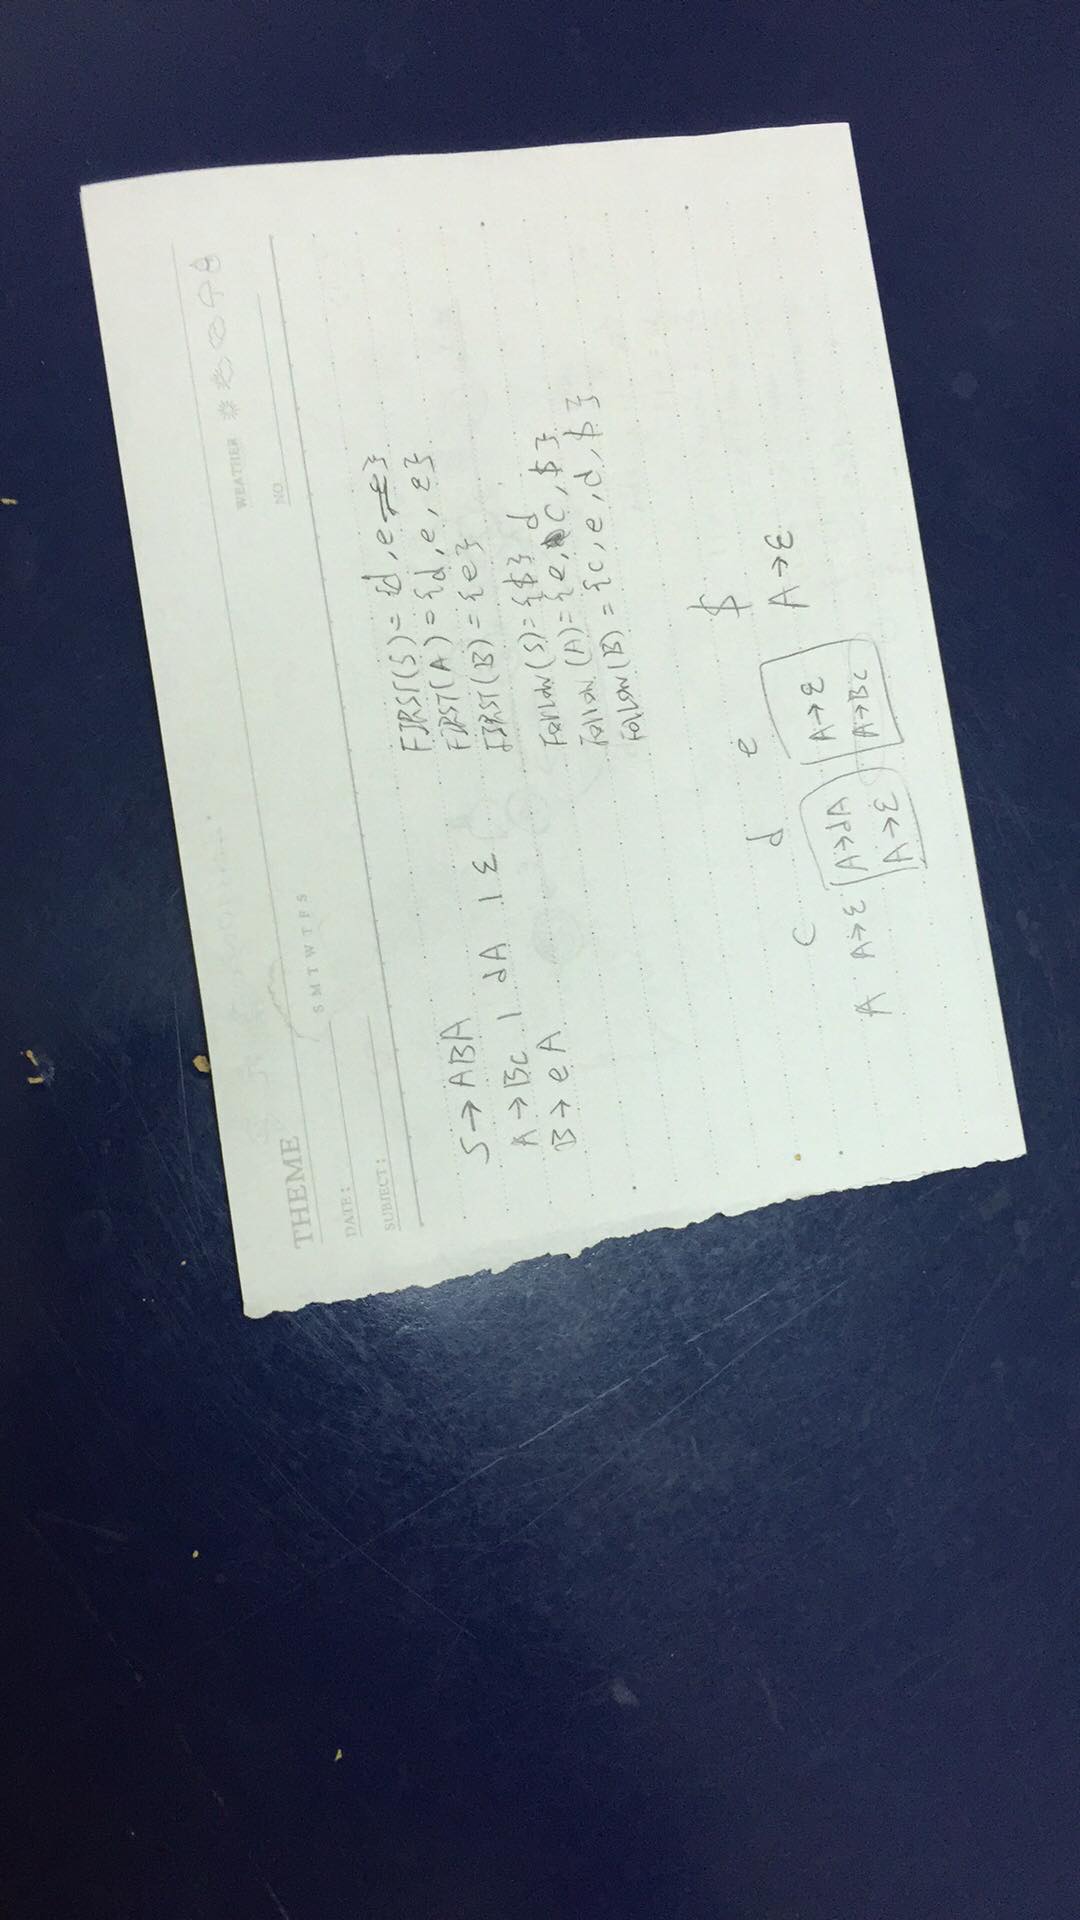 THEME
DATE:
S M T W T F S
WEATHER
SUBJECT:
NO.
S → ABA
A → Bc | dA | ε
B → eA
FIRST(S) = {d, e}
FIRST(A) = {d, e, ε}
FIRST(B) = {e}
Follow(S) = {$}
Follow(A) = {e, d, c, $}
Follow(B) = {c, e, d, $}
c d e $
A A→ε A→dA A→ε A→ε
A→ε A→Bc